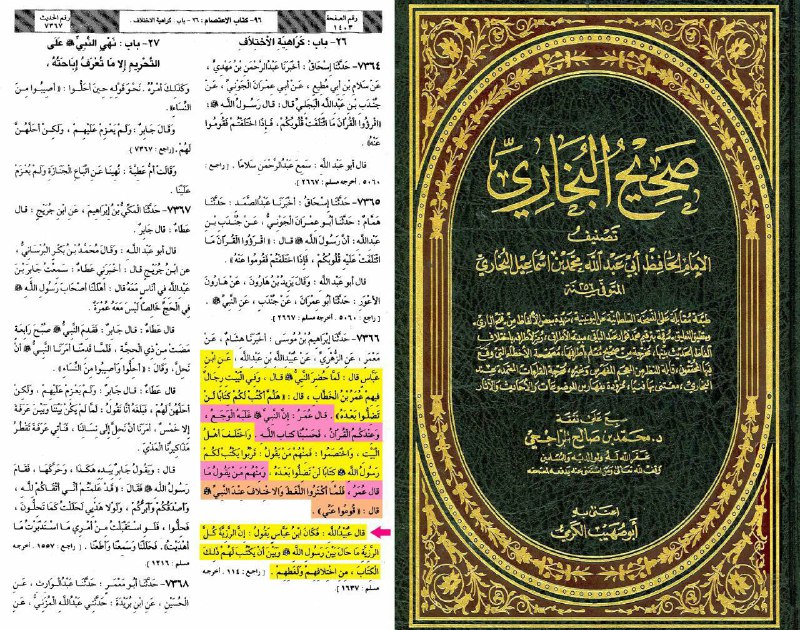 رقم الصفحة
١٤٠٣
٩٦- كتاب الاعتصام : ٢٦- باب : كراهية الاختلاف .
رقم الحديث
٧٣٦٧
٢٦- باب : كَرَاهِيَةِ الاخْتِلافِ
٧٣٦٤- حَدَّثَنَا إِسْحَاقُ : أَخْبَرَنَا عَبْدُالرَّحْمَنِ بْنُ مَهْدِيٍّ ،
عَنْ سَلامِ بْنِ أَبِي مُطِيعٍ ، عَنْ أَبِي عِمْرَانَ الْجَوْنِيِّ ، عَنْ
جُنْدَبِ بْنِ عَبْدِاللَّهِ الْبَجَلِيِّ قال : قال رَسُولُ اللَّهِ ﷺ :
«اقْرَؤُوا الْقُرْآنَ مَا ائْتَلَفَتْ قُلُوبُكُمْ ، فَإِذَا اخْتَلَفْتُمْ فَقُومُوا
عَنْهُ»
قال أبو عَبْد اللَّهِ : سَمِعَ عَبْدُالرَّحْمَنِ سَلامًا . [ راجع :
٥٠٦٠ . أخرجه مسلم : ٢٦٦٧ ] .
٧٣٦٥- حَدَّثَنَا إِسْحَاقُ : أَخْبَرَنَا عَبْدُالصَّمَدِ : حَدَّثَنَا
هَمَّامٌ : حَدَّثَنَا أَبُو عِمْرَانَ الْجَوْنِيُّ ، عَنْ جُنْدَبِ بْنِ
عَبْدِاللَّهِ : أَنَّ رَسُولَ اللَّهِ ﷺ قال : «اقْرَؤُوا الْقُرْآنَ مَا
ائْتَلَفَتْ عَلَيْهِ قُلُوبُكُمْ ، فَإِذَا اخْتَلَفْتُمْ فَقُومُوا عَنْهُ»
قال أبو عبدالله : وَقَالَ يَزِيدُ بْنُ هَارُونَ ، عَنْ هَارُونَ
الأَعْوَرِ : حَدَّثَنَا أَبُو عِمْرَانَ ، عَنْ جُنْدَبٍ ، عَنِ النَّبِيِّ ﷺ .
[ راجع : ٥٠٦٠ . أخرجه مسلم : ٢٦٦٧ ] .
٧٣٦٦- حَدَّثَنَا إِبْرَاهِيمُ بْنُ مُوسَى : أَخْبَرَنَا هِشَامٌ ، عَنْ
مَعْمَرٍ ، عَنِ الزُّهْرِيِّ ، عَنْ عُبَيْدِ اللَّهِ بْنِ عَبْدِاللَّهِ ، عَنِ ابْنِ
عَبَّاسٍ قال : لَمَّا حُضِرَ النَّبِيُّ ﷺ قال ، وَفِي الْبَيْتِ رِجَالٌ
فِيهِمْ عُمَرُ بْنُ الْخَطَّابِ ، قال : «هَلُمَّ أَكْتُبْ لَكُمْ كِتَابًا لَنْ
تَضِلُّوا بَعْدَهُ» . قال عُمَرُ : إِنَّ النَّبِيَّ ﷺ غَلَبَهُ الْوَجَعُ ،
وَعِنْدَكُمُ الْقُرْآنُ ، فَحَسْبُنَا كِتَابُ اللَّهِ . وَاخْتَلَفَ أَهْلُ
الْبَيْتِ ، وَاخْتَصَمُوا : فَمِنْهُمْ مَنْ يَقُولُ : قَرِّبُوا يَكْتُبْ لَكُمْ
رَسُولُ اللَّهِ ﷺ كِتَابًا لَنْ تَضِلُّوا بَعْدَهُ وَمِنْهُمْ مَنْ يَقُولُ مَا
قال عُمَرُ ، فَلَمَّا أَكْثَرُوا اللَّغَطَ وَالاخْتِلافَ عِنْدَ النَّبِيِّ ﷺ
قال : «قُومُوا عَنِّي» .
قال عُبَيْدُاللَّهِ : فَكَانَ ابْنُ عَبَّاسٍ يَقُولُ : إِنَّ الرَّزِيَّةَ كُلَّ
الرَّزِيَّةِ مَا حَالَ بَيْنَ رَسُولِ اللَّهِ ﷺ وَبَيْنَ أَنْ يَكْتُبَ لَهُمْ ذَلِكَ
الْكِتَابَ ، مِنِ اخْتِلافِهِمْ وَلَغَطِهِمْ . [ راجع : ١١٤ . أخرجه
مسلم : ١٦٣٧ ] .
٢٧- باب : نَهْيِ النَّبِيِّ ﷺ عَلَى
التَّحْرِيمِ إِلا مَا تُعْرَفُ إِبَاحَتُهُ ،
وَكَذَلِكَ أَمْرُهُ . نَحْوَ قَوْلِهِ حِينَ أَحَلُّوا : «أَصِيبُوا مِنَ
النِّسَاءِ» .
وَقَالَ جَابِرٌ : وَلَمْ يَعْزِمْ عَلَيْهِمْ ، وَلَكِنْ أَحَلَّهُنَّ
لَهُمْ . [ راجع : ٧٣٦٧ ] .
وَقَالَتْ أُمُّ عَطِيَّةَ : نُهِينَا عَنِ اتِّبَاعِ الْجَنَازَةِ وَلَمْ يُعْزَمْ
عَلَيْنَا .
٧٣٦٧- حَدَّثَنَا الْمَكِّيُّ بْنُ إِبْرَاهِيمَ ، عَنِ ابْنِ جُرَيْجٍ ، قال
عَطَاءٌ : قال جَابِرٌ .
قال أبو عبد اللَّه : وَقَالَ مُحَمَّدُ بْنُ بَكْرٍ الْبُرْسَانِيُّ ،
عَنِ ابْنِ جُرَيْجٍ قال : أَخْبَرَنِي عَطَاءٌ : سَمِعْتُ جَابِرَ بْنَ
عَبْدِاللَّهِ فِي أُنَاسٍ مَعَهُ قال : أَهْلَلْنَا أَصْحَابَ رَسُولِ اللَّهِ ﷺ
فِي الْحَجِّ خَالِصًا لَيْسَ مَعَهُ عُمْرَةٌ .
قال عَطَاءٌ : قال جَابِرٌ : فَقَدِمَ النَّبِيُّ ﷺ صُبْحَ رَابِعَةٍ
مَضَتْ مِنْ ذِي الْحِجَّةِ ، فَلَمَّا قَدِمْنَا أَمَرَنَا النَّبِيُّ ﷺ أَنْ
نَحِلَّ ، وَقَالَ : «أَحِلُّوا وَأَصِيبُوا مِنَ النِّسَاءِ» .
قال عَطَاءٌ : قال جَابِرٌ : وَلَمْ يَعْزِمْ عَلَيْهِمْ ، وَلَكِنْ
أَحَلَّهُنَّ لَهُمْ ، فَبَلَغَهُ أَنَّا نَقُولُ : لَمَّا لَمْ يَكُنْ بَيْنَنَا وَبَيْنَ عَرَفَةَ
إِلا خَمْسٌ ، أَمَرَنَا أَنْ نَحِلَّ إِلَى نِسَائِنَا ، فَنَأْتِي عَرَفَةَ تَقْطُرُ
مَذَاكِيرُنَا الْمَذْيَ .
قال : وَيَقُولُ جَابِرٌ بِيَدِهِ هَكَذَا ، وَحَرَّكَهَا ، فَقَامَ
رَسُولُ اللَّهِ ﷺ فَقَالَ : «قَدْ عَلِمْتُمْ أَنِّي أَتْقَاكُمْ لِلَّهِ ،
وَأَصْدَقُكُمْ وَأَبَرُّكُمْ ، وَلَوْلا هَدْيِي لَحَلَلْتُ كَمَا تَحِلُّونَ ،
فَحِلُّوا ، فَلَوِ اسْتَقْبَلْتُ مِنْ أَمْرِي مَا اسْتَدْبَرْتُ مَا
أَهْدَيْتُ» . فَحَلَلْنَا وَسَمِعْنَا وَأَطَعْنَا . [ راجع : ١٥٥٧ . أخرجه
مسلم : ١٢١٦ ] .
٧٣٦٨- حَدَّثَنَا أَبُو مَعْمَرٍ : حَدَّثَنَا عَبْدُالْوَارِثِ ، عَنِ
الْحُسَيْنِ ، عَنِ ابْنِ بُرَيْدَةَ : حَدَّثَنِي عَبْدُاللَّهِ الْمُزَنِيُّ ، عَنِ
صَحِيحُ البُخَارِيّ
تَصْنِيفُ
الإِمَامِ الحَافِظِ أَبِي عَبْدِ اللهِ مُحَمَّدِ بْنِ اسْمَاعِيلَ البُخَارِيِّ
المتوفى سنة ٢٥٦
طبعَ عَلَى نَفَقَة
د. محمد بن صالح الراجحي
غفر الله له ولوالديه وللمسلمين
اعتنى به
أبو صهيب الكرمي